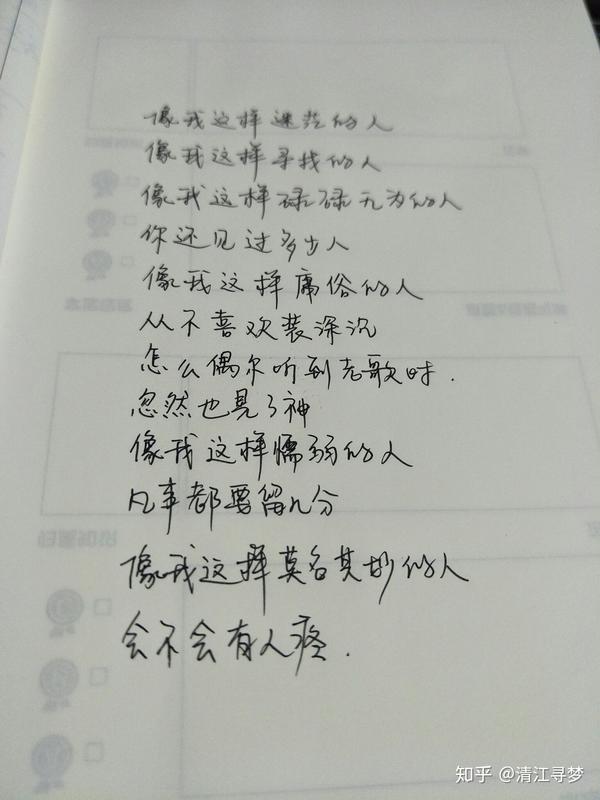 像我这样迷茫的人
像我这样寻找的人
像我这样碌碌无为的人
你还见过多少人
像我这样庸俗的人
从不喜欢装深沉
怎么偶尔听到老歌时.
忽然也晃了神
像我这样懦弱的人
凡事都要留几分
像我这样莫名其妙的人
会不会有人疼.
知乎 @清江寻梦